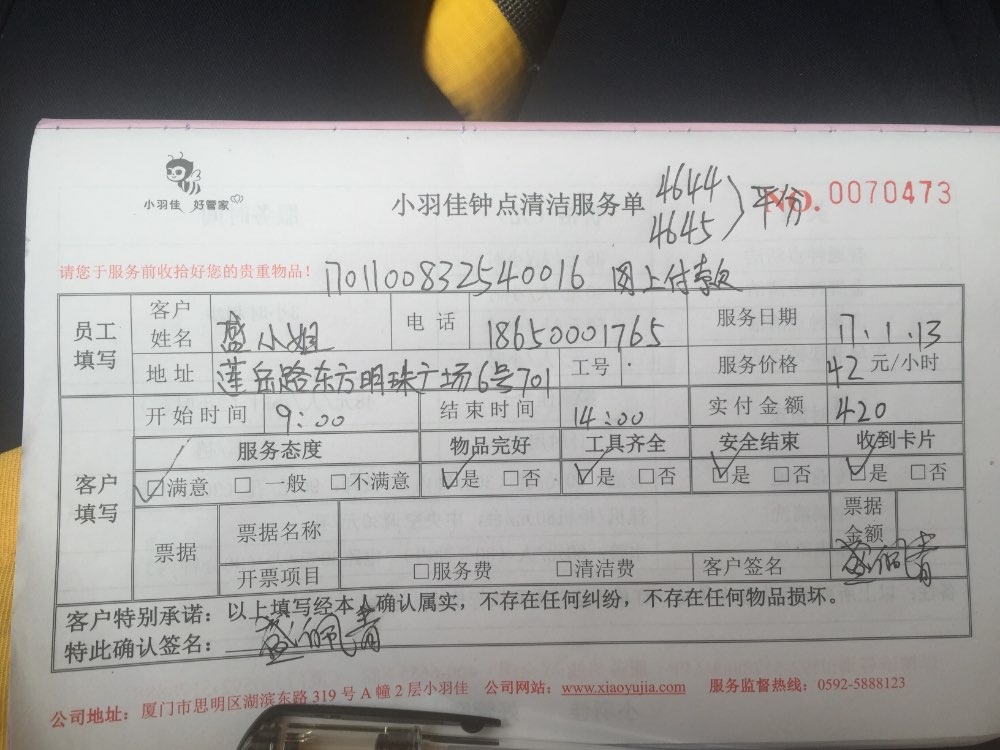 小羽佳 好管家
小羽佳钟点清洁服务单 4644 4645 平分 NO. 0070473
请您于服务前收拾好您的贵重物品！ 170110083254 0016 网上付款
员工填写 客户姓名 盛小姐 电话 18650001765 服务日期 17.1.13
地址 莲岳路东方明珠广场6号701 工号 服务价格 42 元/小时
客户填写 开始时间 9:00 结束时间 14:00 实付金额 420
服务态度 物品完好 工具齐全 安全结束 收到卡片
☑满意 □一般 □不满意 ☑是 □否 ☑是 □否 ☑是 □否 ☑是 □否
票据 票据名称 票据金额
开票项目 □服务费 □清洁费 客户签名 盛佩青
客户特别承诺：以上填写经本人确认属实，不存在任何纠纷，不存在任何物品损坏。
特此确认签名： 盛佩青
公司地址：厦门市思明区湖滨东路 319 号 A 幢 2 层小羽佳 公司网站：www.xiaoyujia.com 服务监督热线：0592-5888123